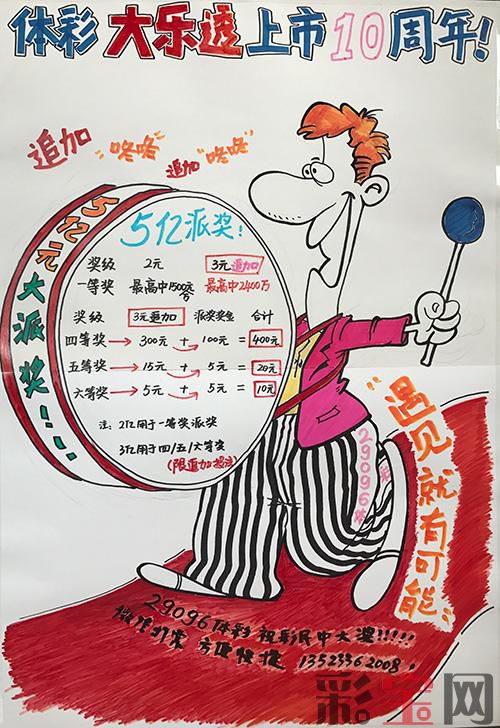 体彩 大乐透上市10周年!
追加
"咚咚
追加"咚咚"
5亿元大派奖!
5亿派奖!
奖级 2元 3元追加
一等奖 最高中1500万 最高中2400万
奖级 3元追加 派奖奖金 合计
四等奖→300元+100元=400元
五等奖→15元+5元=20元
六等奖→5元+5元=10元
注:2亿用于一等奖派奖
3亿用于四/五/六等奖
(限追加投注)
"遇见就有可能
29096
29096体彩 祝彩民中大奖!!!!!
方便快捷 13523362008.
彩宝网